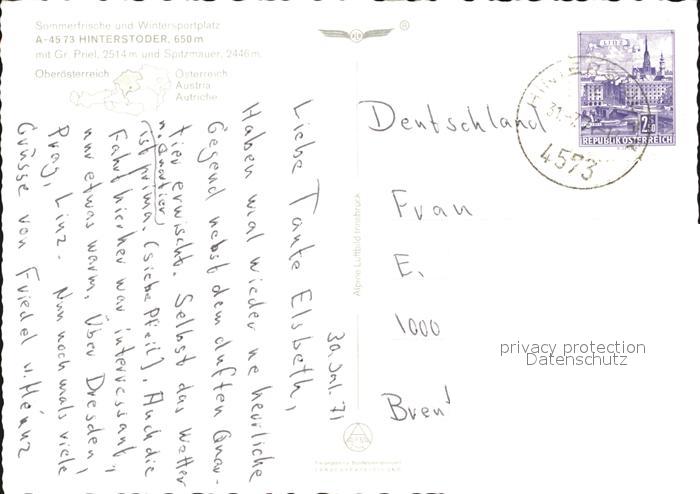 Sommerfrische und Wintersportplatz
A-4573 HINTERSTODER, 650 m
mit Gr. Priel, 2514 m und Spitzmauer, 2446 m.
Oberösterreich
Österreich
Austria
Autriche
30. Jul. 71
Liebe Tante Elsbeth,
Haben mal wieder ne herrliche
Gegend nebst dem duften Quar-
tier erwischt. Selbst das Wetter
u. Quartier
ist prima. (siehe Pfeil). Auch die
Fahrt hierher war interessant,
nur etwas warm. Über Dresden,
Prag, Linz. Nun nochmals viele
Grüsse von Friedel u. Heinz
Alpine Luftbild Innsbruck
LINZ
2
REPUBLIK ÖSTERREICH
4573
Deutschland
Frau
E.
1000
privacy protection
Datenschutz